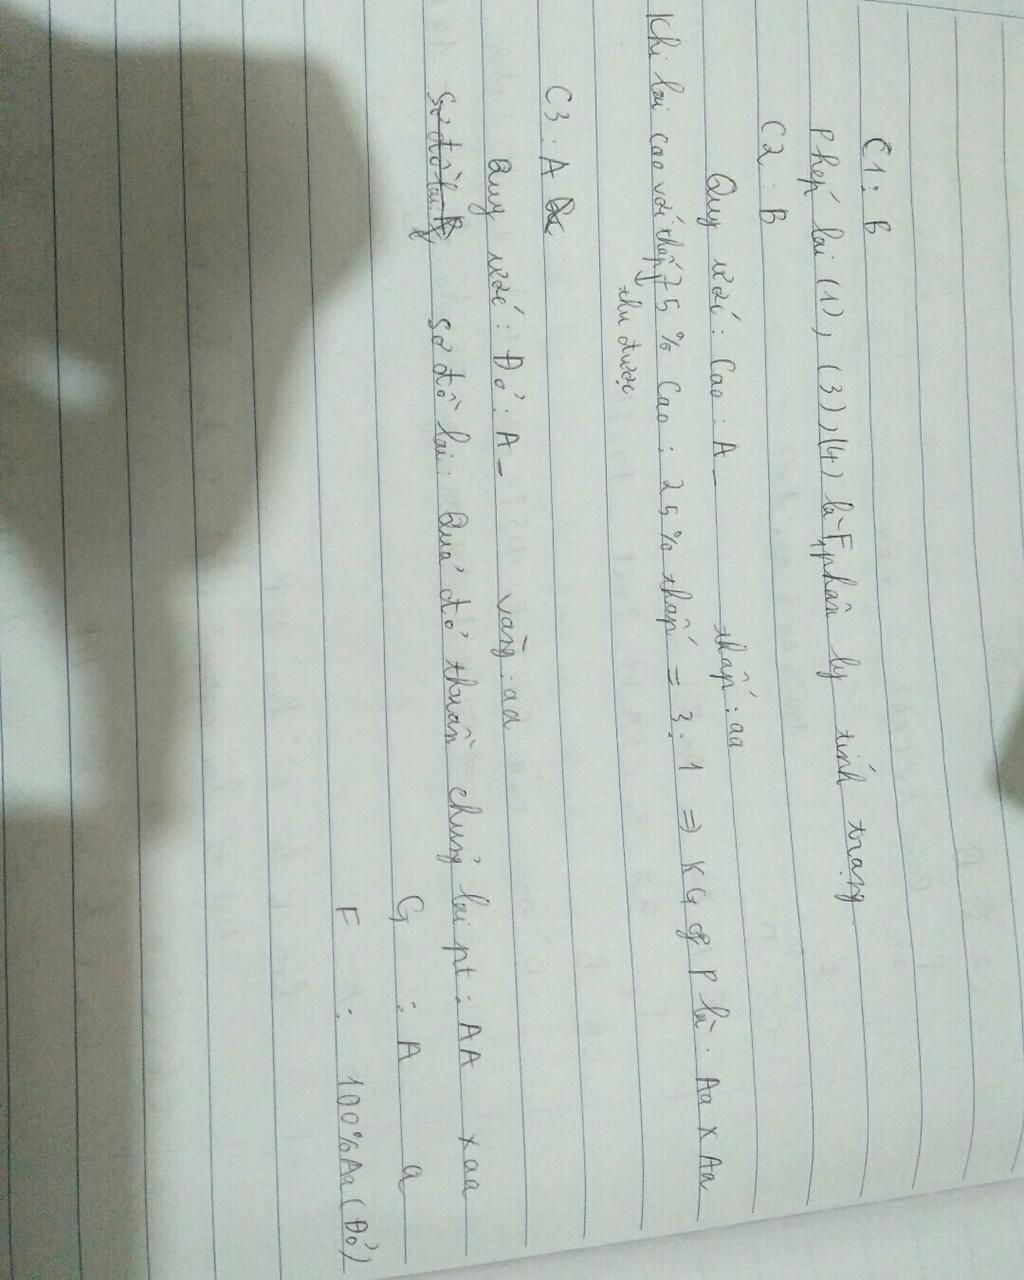 C1: B
Phép lai (1), (3), (4) là F1 phân ly tính trạng
C2: B
Quy ước: Cao: A_ thấp: aa
Khi lai cao với thấp 75% Cao: 25% thấp = 3:1 => KG of P là: Aa x Aa
thu được
C3: A
Quy ước: Đỏ: A_ vàng: aa
Sơ đồ lai: P Sơ đồ lai: Quả đỏ thuần chủng lai pt: AA x aa
G : A a
F1: 100% Aa (Đỏ)